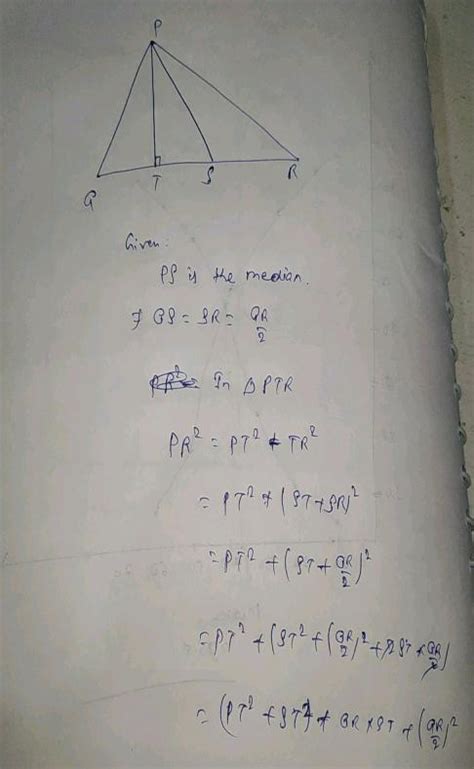 P
Q T S R
Given:
PS is the median.
⇒ QS = SR = QR/2
In △PTR
PR² = PT² + TR²
= PT² + (ST+SR)²
= PT² + (ST + QR/2)²
= PT² + (ST² + (QR/2)² + 2ST × QR/2)
= (PT² + ST²) + QR × ST + (QR/2)²